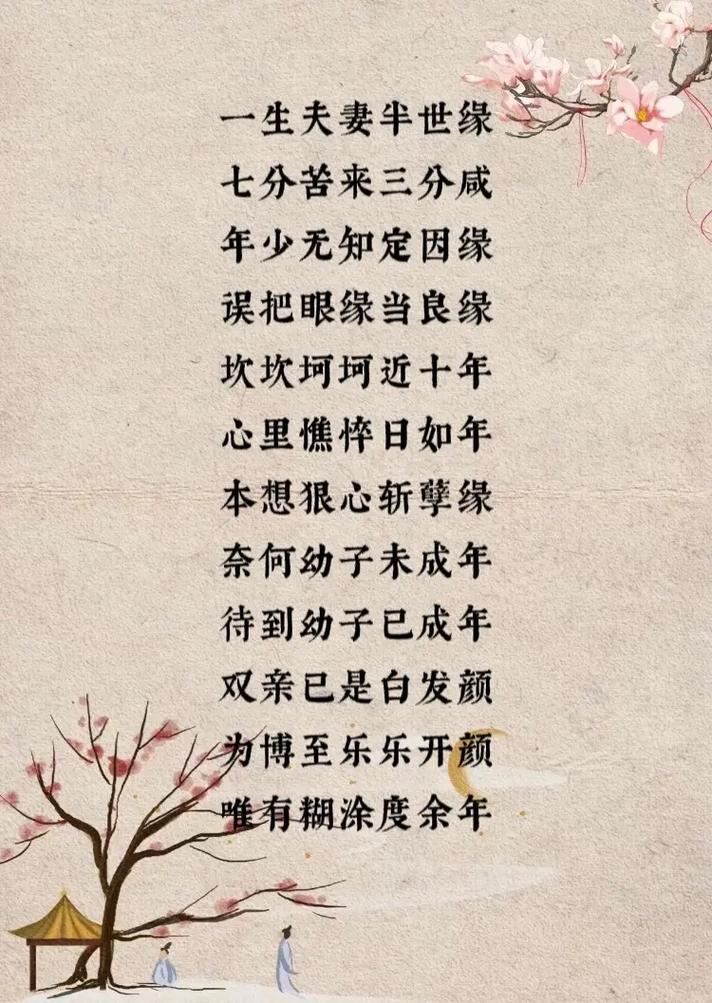 一生夫妻半世缘
七分苦来三分咸
年少无知定因缘
误把眼缘当良缘
坎坎坷坷近十年
心里憔悴日如年
本想狠心斩孽缘
奈何幼子未成年
待到幼子已成年
双亲已是白发颜
为博至乐乐开颜
唯有糊涂度余年